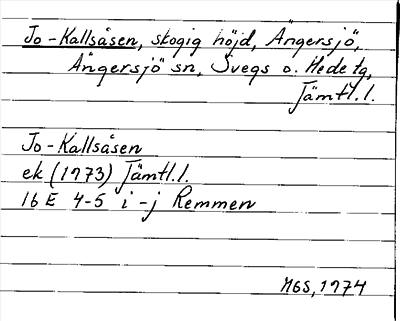 Jo-Kallsåsen, skogig höjd, Ängersjö,
Ängersjö sn, Svegs o. Hede tg,
Jämtl.l.
Jo-Kallsåsen
ek (1973) Jämtl.l.
16 E 4-5 i-j Remmen
MGS, 1974